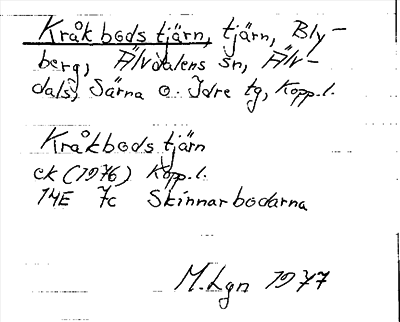 Kråkbods tjärn, tjärn, Bly-
berg, Älvdalens sn, Älv-
dals, Särna o. Idre tg, Kopp.l.
Kråkbods tjärn
ek (1976) Kopp.l.
14E 7c Skinnarbodarna
M.Lgn 1977